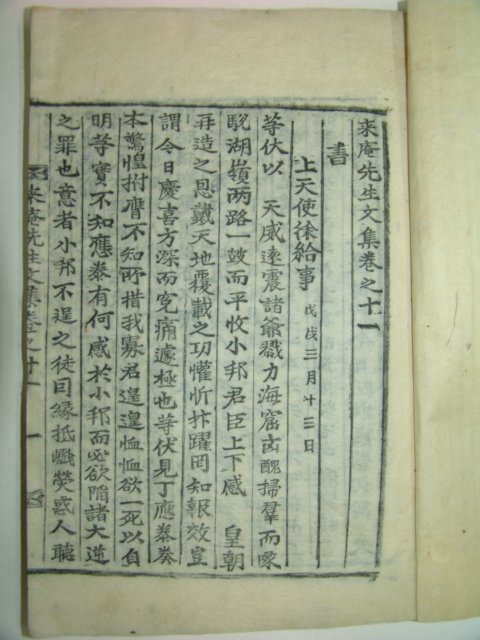 來庵先生文集卷之十一
書
上天使徐給事 戊戌三月十三日
等伏以 天威遠震諸爺戮力海窟凶醜掃羣而喙
駾湖嶺兩路一鼓而平收小邦君臣上下感 皇朝
再造之恩戴天地覆載之功懽忻抃躍罔知報效豈
謂今日慶喜方深而寃痛遽極也等伏見丁應泰奏
本驚惶拊膺不知所措我寡君遑遑恤恤欲一死以自
明等實不知應泰有何感於小邦而必欲陷諸大逆
之罪也意者小邦不逞之徒因緣抵巇熒惑人聽
來庵先生文集卷之十一
一